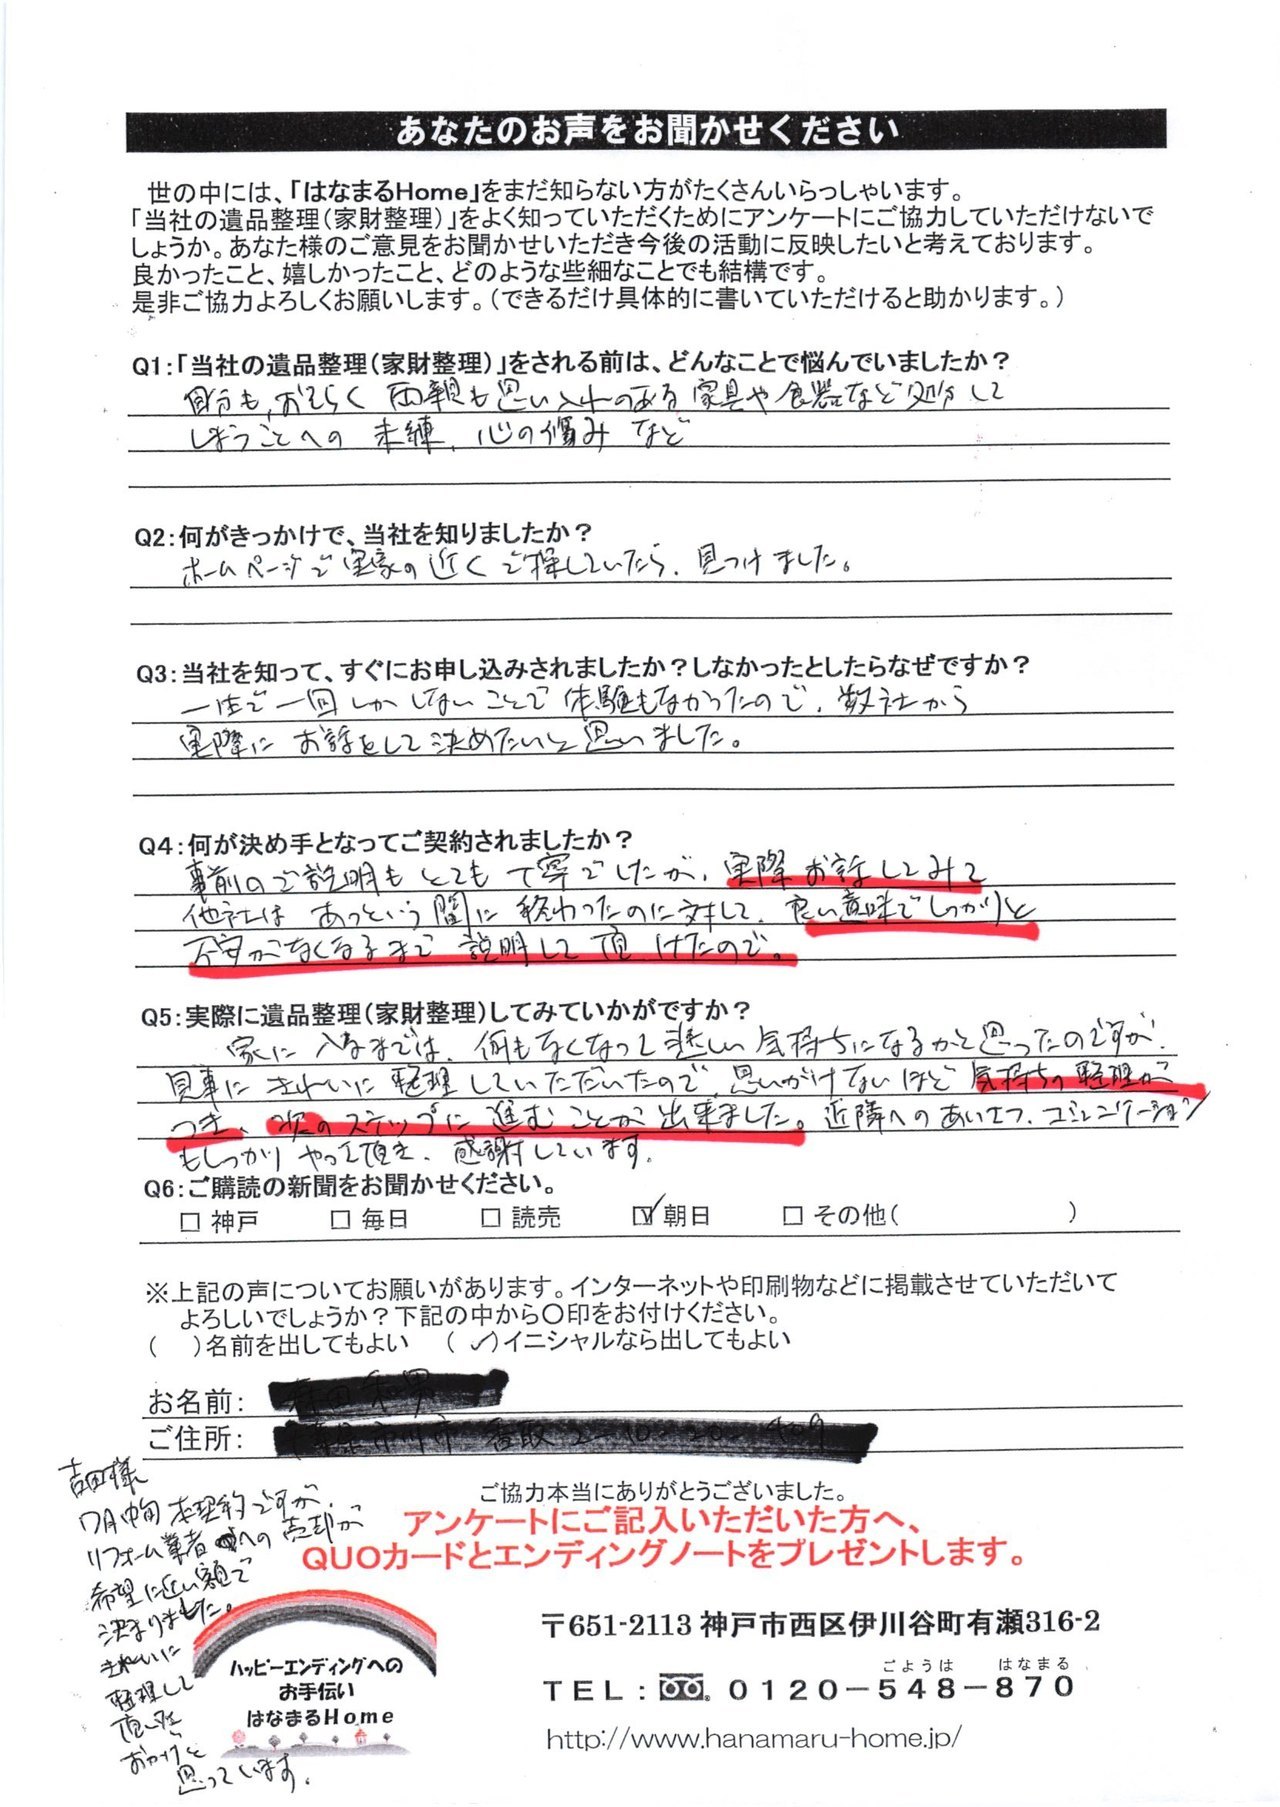 あなたのお声をお聞かせください
世の中には、「はなまるHome」をまだ知らない方がたくさんいらっしゃいます。
「当社の遺品整理(家財整理)」をよく知っていただくためにアンケートにご協力していただけないで
しょうか。あなた様のご意見をお聞かせいただき今後の活動に反映したいと考えております。
良かったこと、嬉しかったこと、どのような些細なことでも結構です。
是非ご協力よろしくお願いします。(できるだけ具体的に書いていただけると助かります。)
Q1:「当社の遺品整理(家財整理)」をされる前は、どんなことで悩んでいましたか?
自分も、おそらく両親も思い入れのある家具や食器など処分して
しまうことへの未練、心の傷みなど
Q2:何がきっかけで、当社を知りましたか?
ホームページで実家の近くで探していたら、見つけました。
Q3:当社を知って、すぐにお申し込みされましたか?しなかったとしたらなぜですか?
一生で一回しかしないことで体験もなかったので、数社から
実際にお話をして決めたいと思いました。
Q4:何が決め手となってご契約されましたか?
事前のご説明もとても丁寧でしたが、実際お話してみて
他社はあっという間に終わったのに対して、良い意味でしっかりと
不安がなくなるまで説明して頂けたので。
Q5:実際に遺品整理(家財整理)してみていかがですか?
家に入るまでは、何もなくなって悲しい気持ちになるかと思ったのですが、
見事にきれいに整理していただいたので、思いがけないほど気持ちの整理が
つき、次のステップに進むことが出来ました。近隣へのあいさつ、コミュニケーション
もしっかりやって頂き、感謝しています。
Q6:ご購読の新聞をお聞かせください。
□ 神戸 □ 毎日 □ 読売 ☑ 朝日 □ その他( )
※上記の声についてお願いがあります。インターネットや印刷物などに掲載させていただいて
よろしいでしょうか?下記の中から○印をお付けください。
( )名前を出してもよい (✓)イニシャルなら出してもよい
お名前:
ご住所:
吉田様
7月中旬本契約ですが、
リフォーム業者への売却が
希望に近い額で
決まりました。
きれいに
整理して
頂いた
おかげと
思っています。
ご協力本当にありがとうございました。
アンケートにご記入いただいた方へ、
QUOカードとエンディングノートをプレゼントします。
ハッピーエンディングへの
お手伝い
はなまるHome
〒651-2113 神戸市西区伊川谷町有瀬316-2
ごようは はなまる
TEL: 0120-548-870
http://www.hanamaru-home.jp/